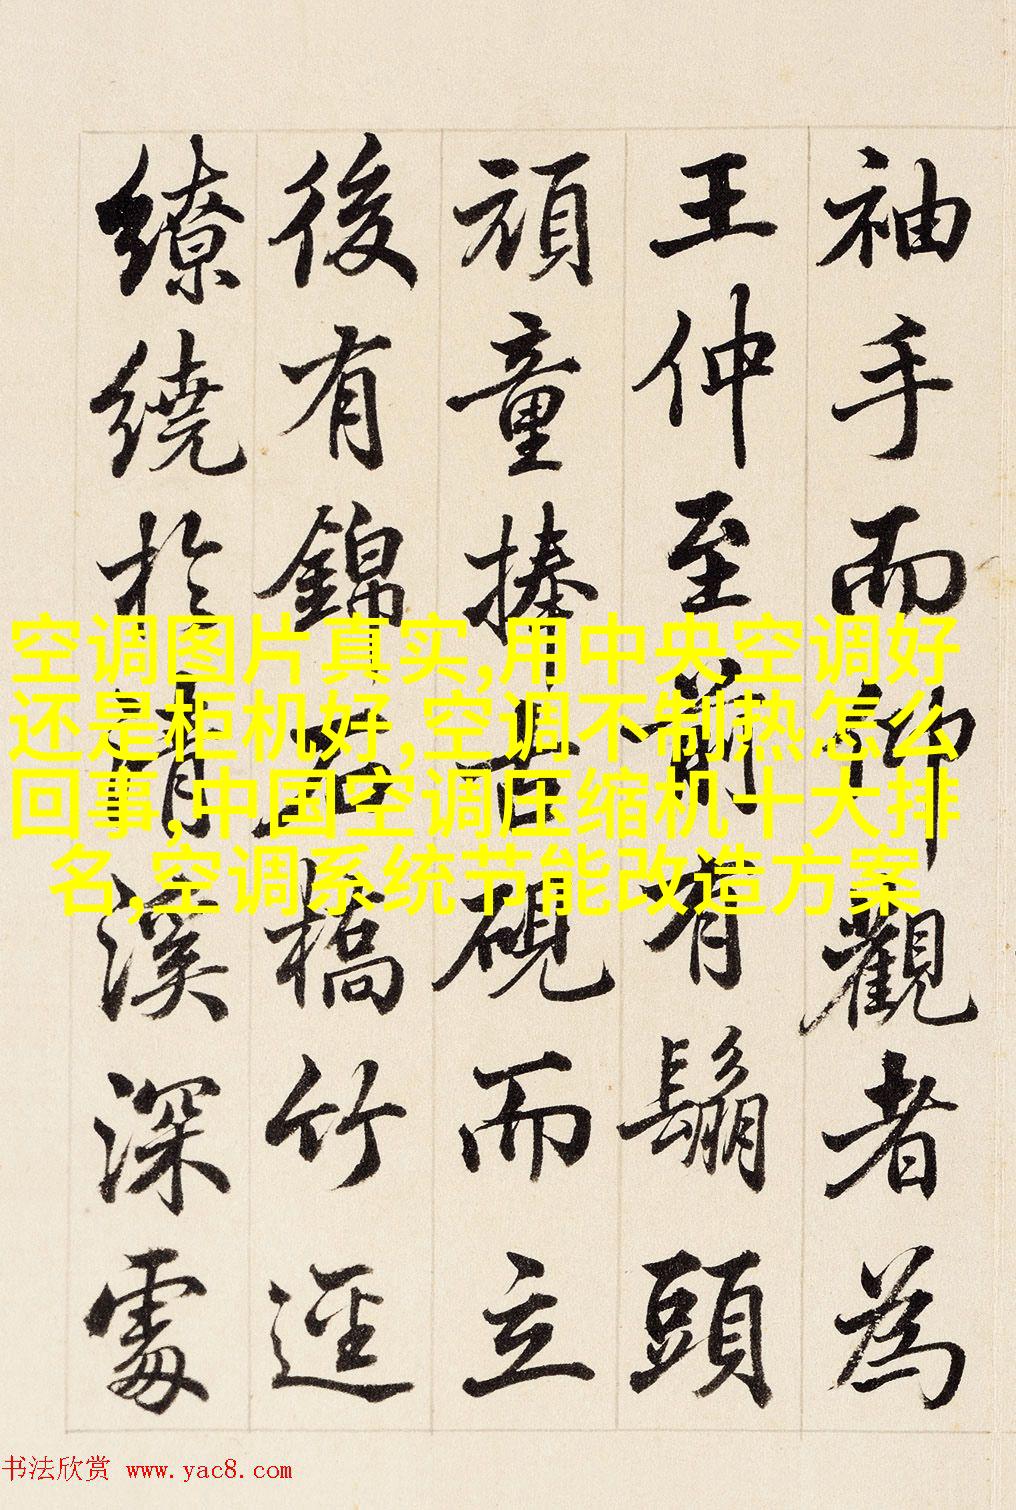 袖手而仰觀者為
王仲至前有鬅頭
頑童捧古硯而立
後有錦石橋竹逕
繚繞於清溪深處
空调图片真实,用中央空调好
还是柜机好,空调不制热怎么
回事,中国空调压缩机十大排
名,空调系统节能改造方案
书法欣赏 www.yac8.com